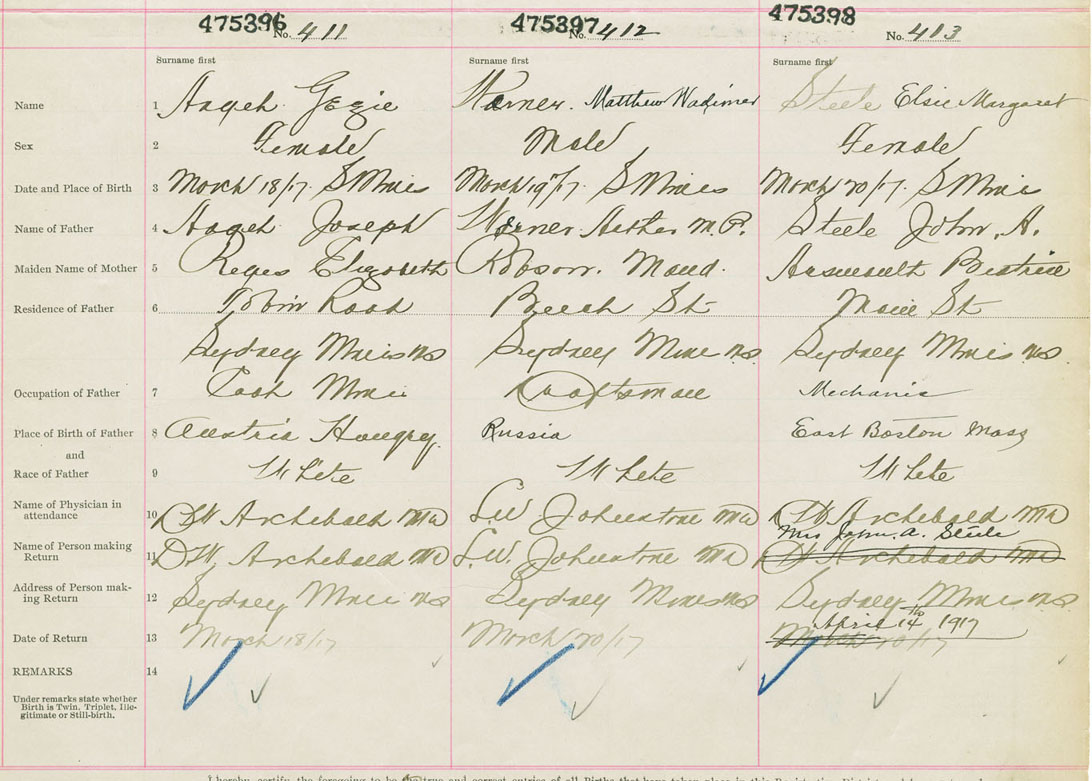 475396 475397 475398
No. 411 No. 412 No. 413
Surname first Surname first Surname first
Name 1 Aageh Gezie Warner. Matthew Wadimer Steele Elsie Margaret
Sex 2 Female Male Female
Date and Place of Birth 3 March 18/17. S Mines March 19/17. S Mines March 20/17. S Mines
Name of Father 4 Aageh Joseph Warner Arther M.P. Steele John. A.
Maiden Name of Mother 5 Elizabeth Robson. Maud. Beatrice
Residence of Father 6 Tobin Road Beech St Main St
Sydney Mines NS Sydney Mines NS Sydney Mines NS
Occupation of Father 7 Craftsman Mechanic
Place of Birth of Father 8 Austria Hungry. Russia East Boston Mass
and
Race of Father 9 White White White
Name of Physician in
attendance 10 DW Archibald MD LW Johnstone MD DW Archibald MD
Mrs John. A. Steele
Name of Person making
Return 11 DW. Archibald MD L.W. Johnstone MD DW Archibald MD
Address of Person mak-
ing Return 12 Sydney Mines NS Sydney Mines NS Sydney Mines NS
April 14th 1917
Date of Return 13 March 18/17 March 20/17 March 20/17
REMARKS 14
Under remarks state whether
Birth is Twin, Triplet, Ille-
gitimate or Still-birth.
I hereby certify the foregoing to be the true and correct entries of all Births that have taken place in this Registration District